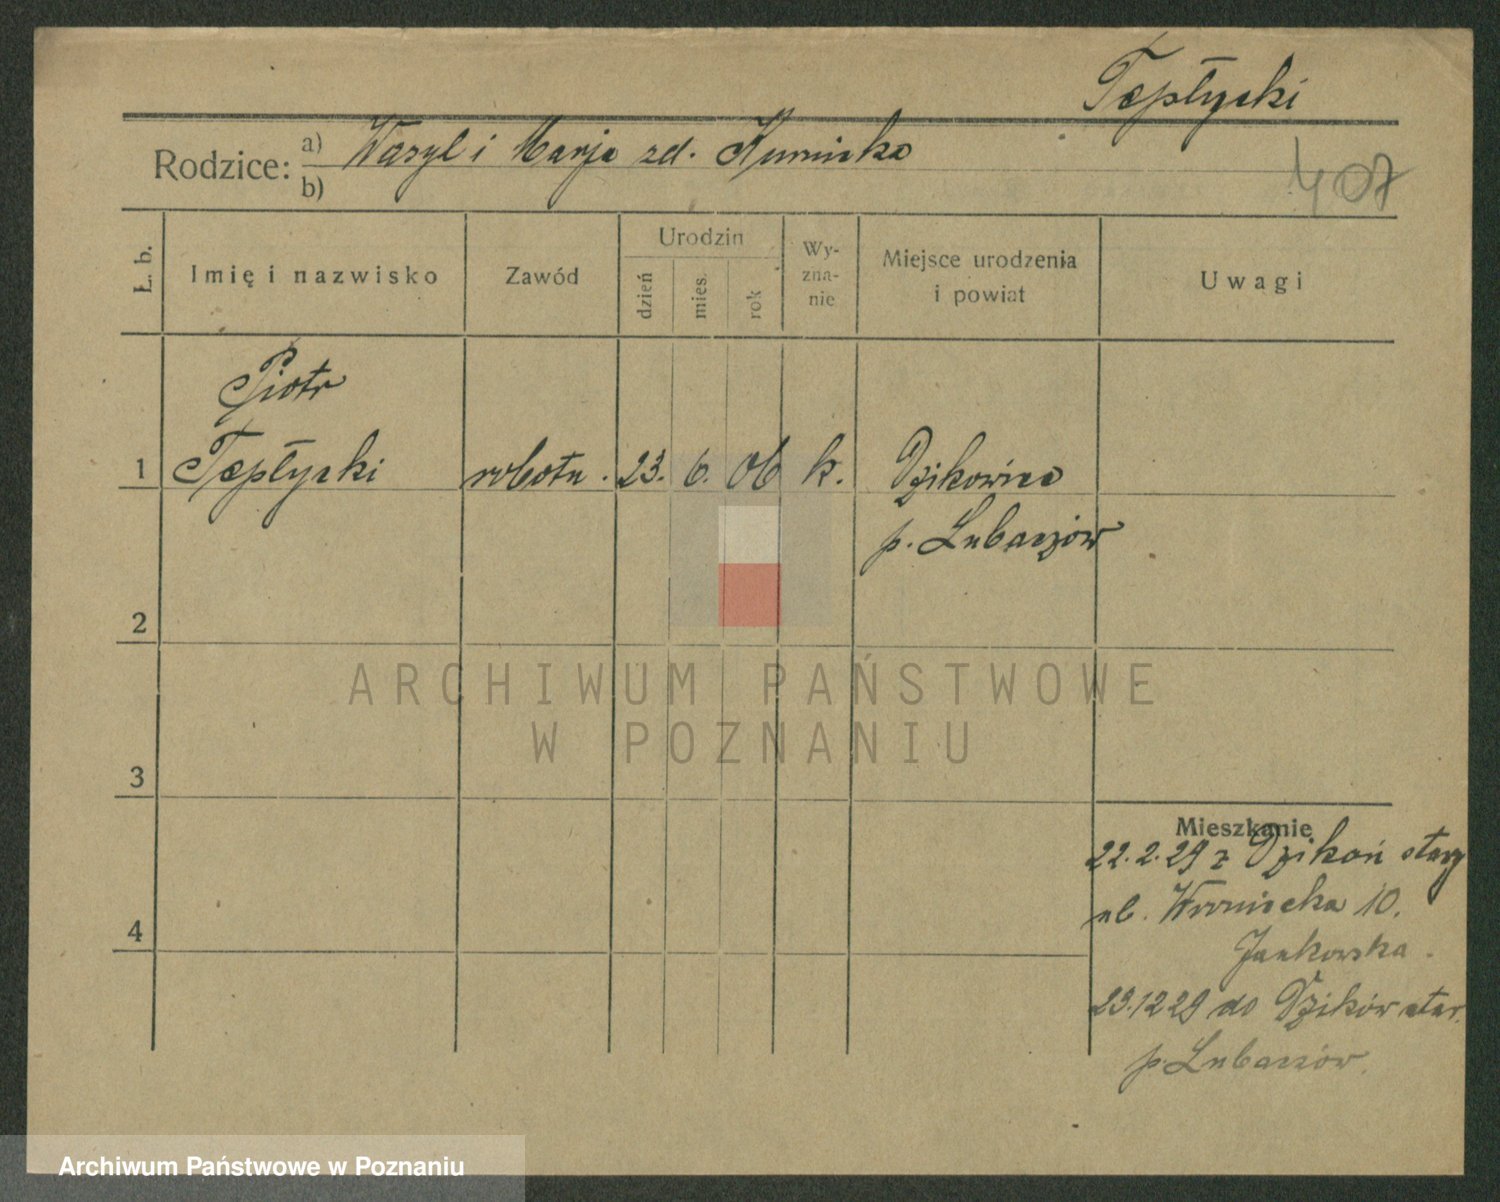 Tepłycki
Rodzice: a) Wasyl i Marja zd. Kumicka
b)
407
Ł. b.
Imię i nazwisko
Zawód
Urodzin
dzień
mies.
rok
Wy-
zna-
nie
Miejsce urodzenia
i powiat
Uwagi
Piotr
1 Tepłycki robotn. 23. 6. 06 k. Dzikowiec
p. Lubaczów
2
3
4
Mieszkanie
22.2.29 z Dzików stary
ul. Wroniecka 10.
Jankowska.
23.12 29 do Dzików star.
p. Lubaczów.
ARCHIWUM PAŃSTWOWE
W POZNANIU
Archiwum Państwowe w Poznaniu